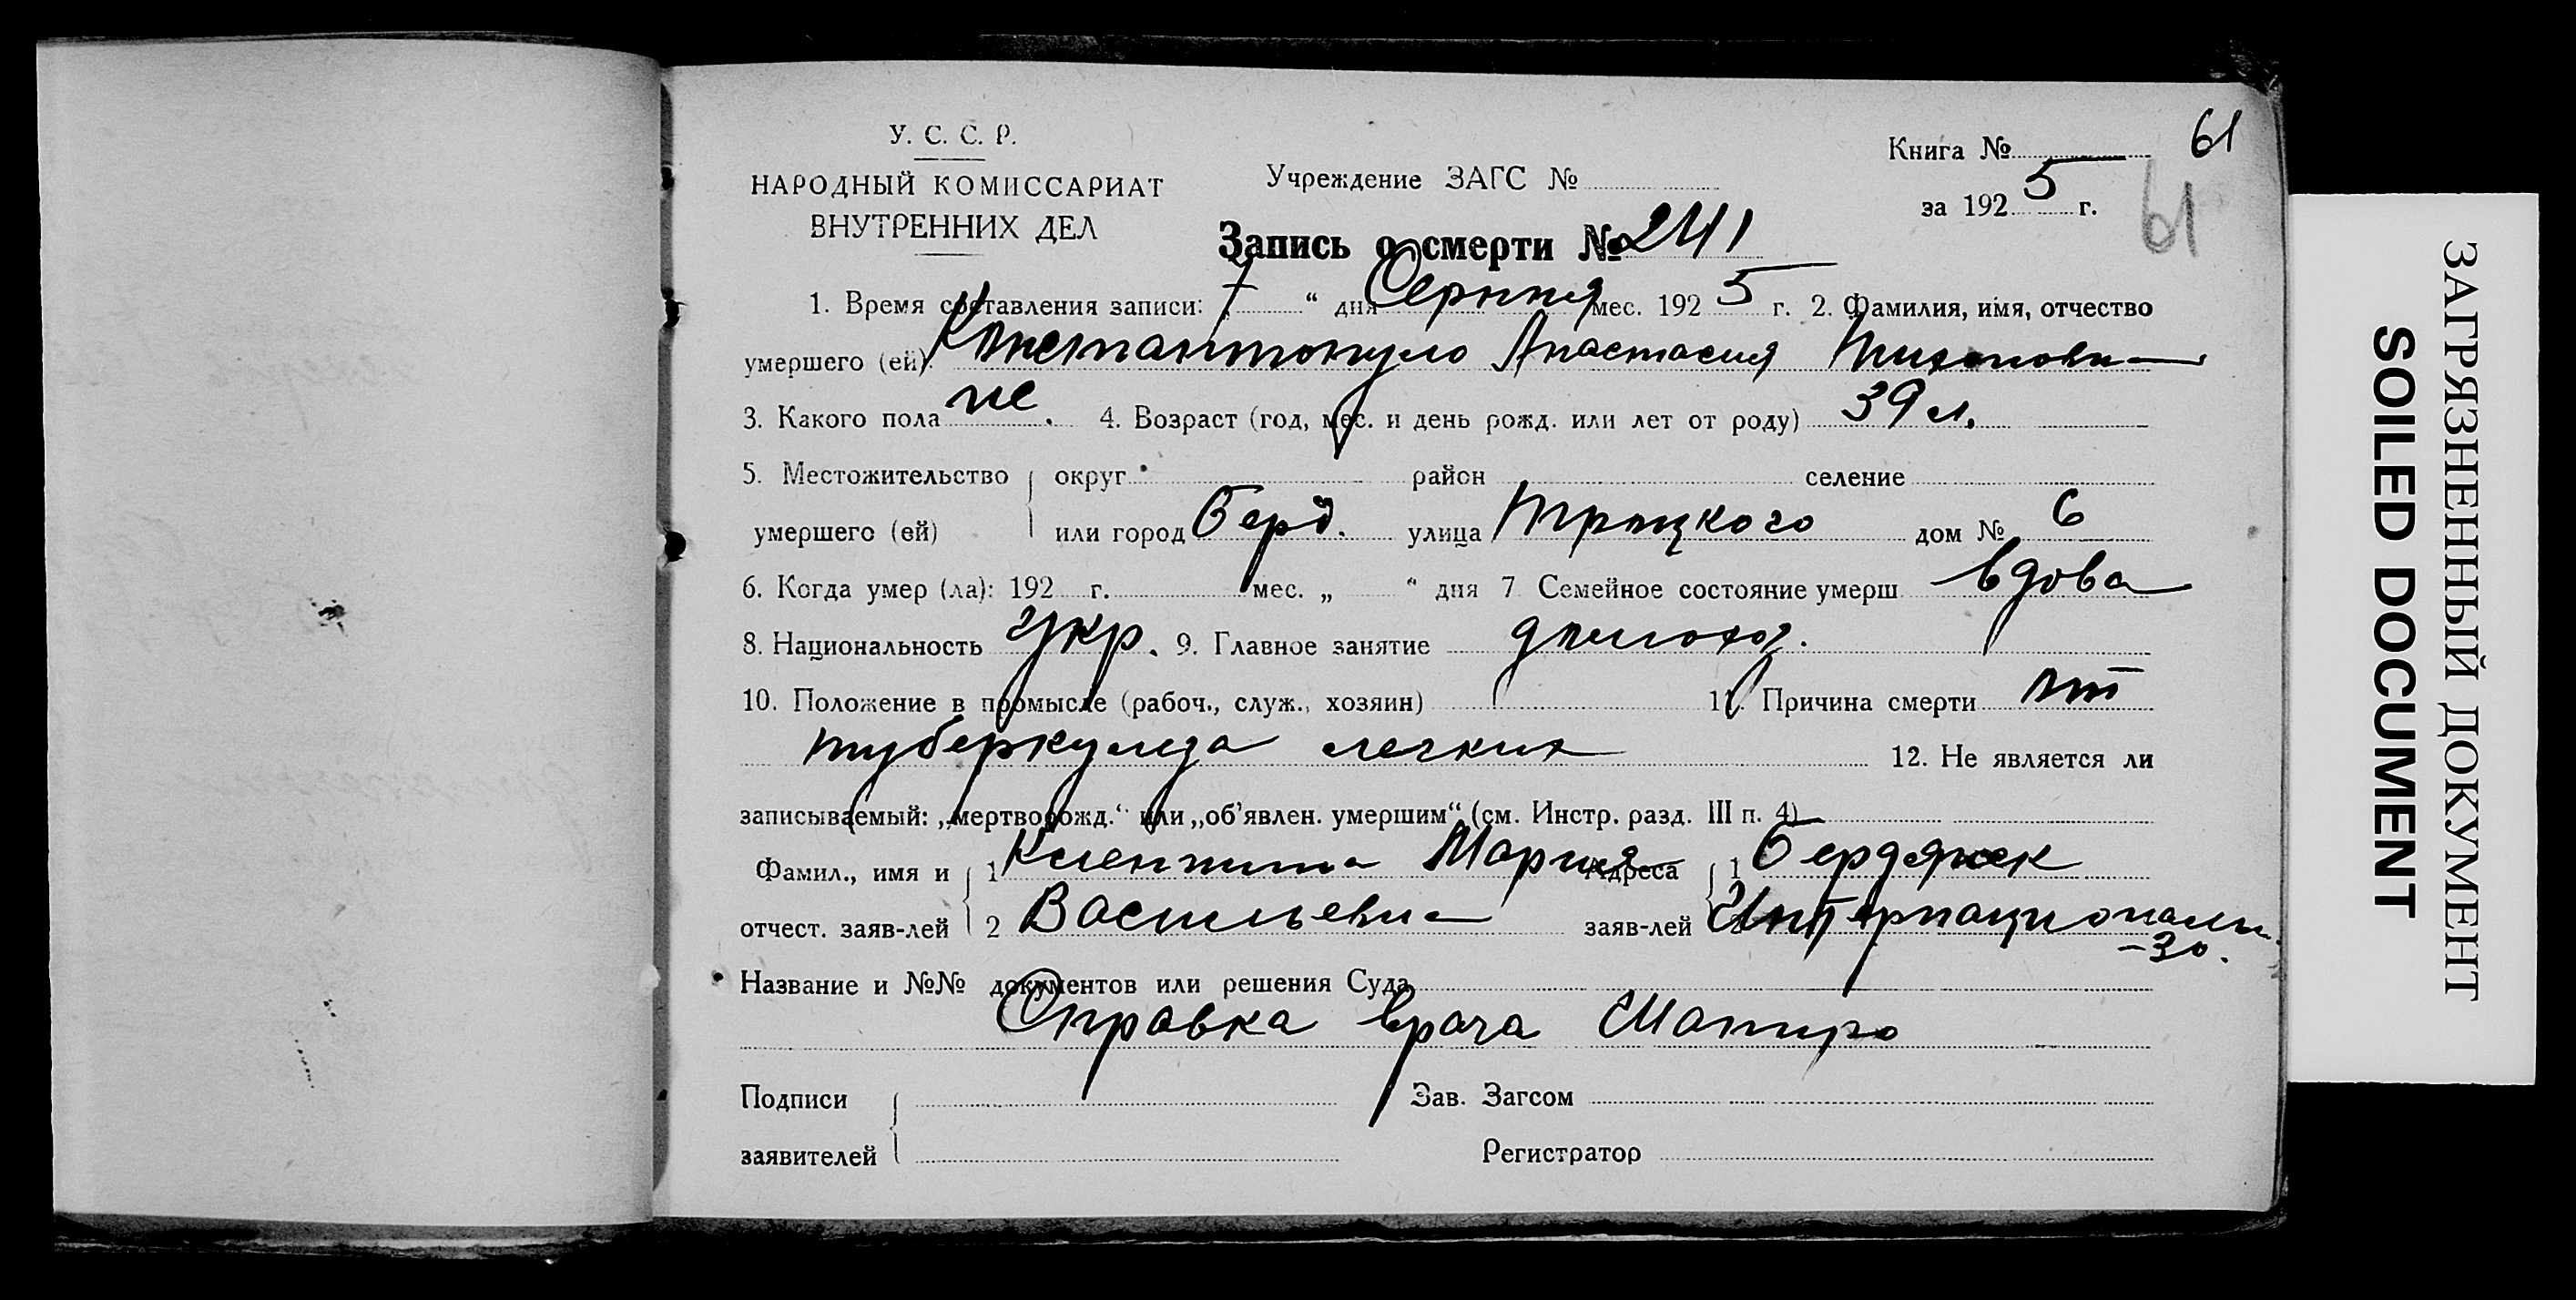 61
У. С. С. Р.
НАРОДНЫЙ КОМИССАРИАТ
ВНУТРЕННИХ ДЕЛ
Учреждение ЗАГС №
Книга №
за 1925 г.
61
Запись о смерти № 241
1. Время составления записи: „7“ дня Серпня мес. 1925 г. 2. Фамилия, имя, отчество
умершего (ей): Анастасия
3. Какого пола же. 4. Возраст (год, мес. и день рожд. или лет от роду) 39 л.
5. Местожительство округ район селение
умершего (ей) или город Берд. улица Троцкого дом № 6
6. Когда умер (ла): 192 г. мес. „ “ дня 7 Семейное состояние умерш вдова
8. Национальность укр. 9. Главное занятие домохоз.
10. Положение в промысле (рабоч., служ., хозяин) 11. Причина смерти от
туберкулеза легких 12. Не является ли
записываемый: „мертворожд.“ или „об’явлен. умершим“ (см. Инстр. разд. III п. 4)
Фамил., имя и 1 Мария Адреса 1 Бердянск
отчест. заяв-лей 2 Васильевна заяв-лей
-30.
Название и №№ документов или решения Суда
Справка врача Шапиро
Подписи Зав. Загсом
заявителей Регистратор
ЗАГРЯЗНЕННЫЙ ДОКУМЕНТ
SOILED DOCUMENT